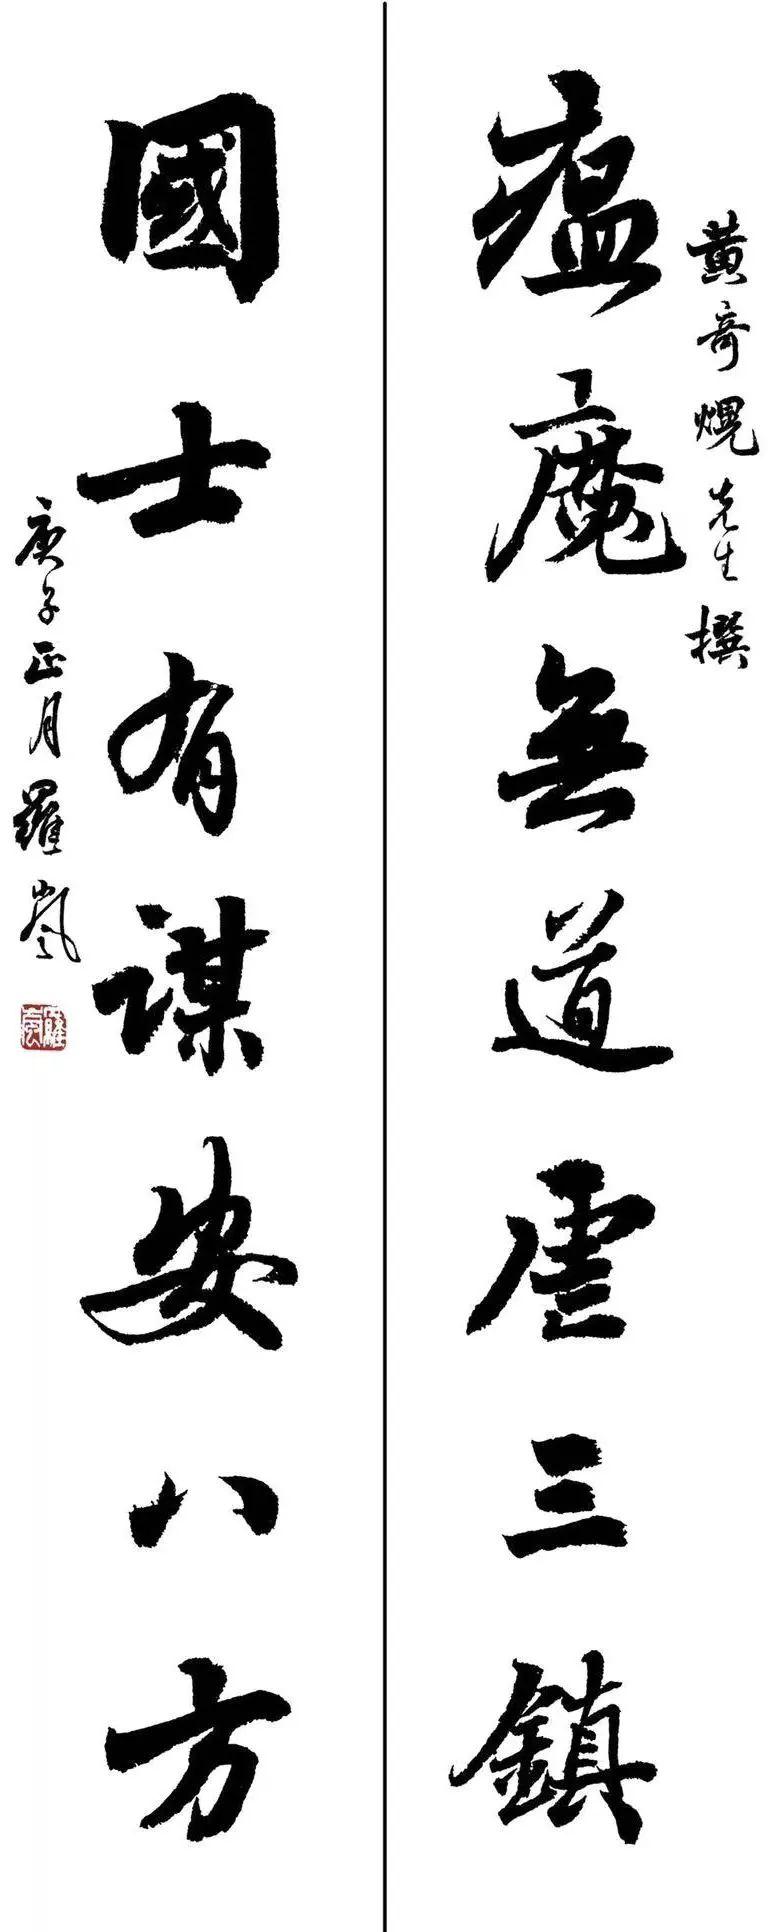 黃奇熀先生撰
瘟魔無道虐三鎮
國士有謀安八方
庚子正月羅嵐